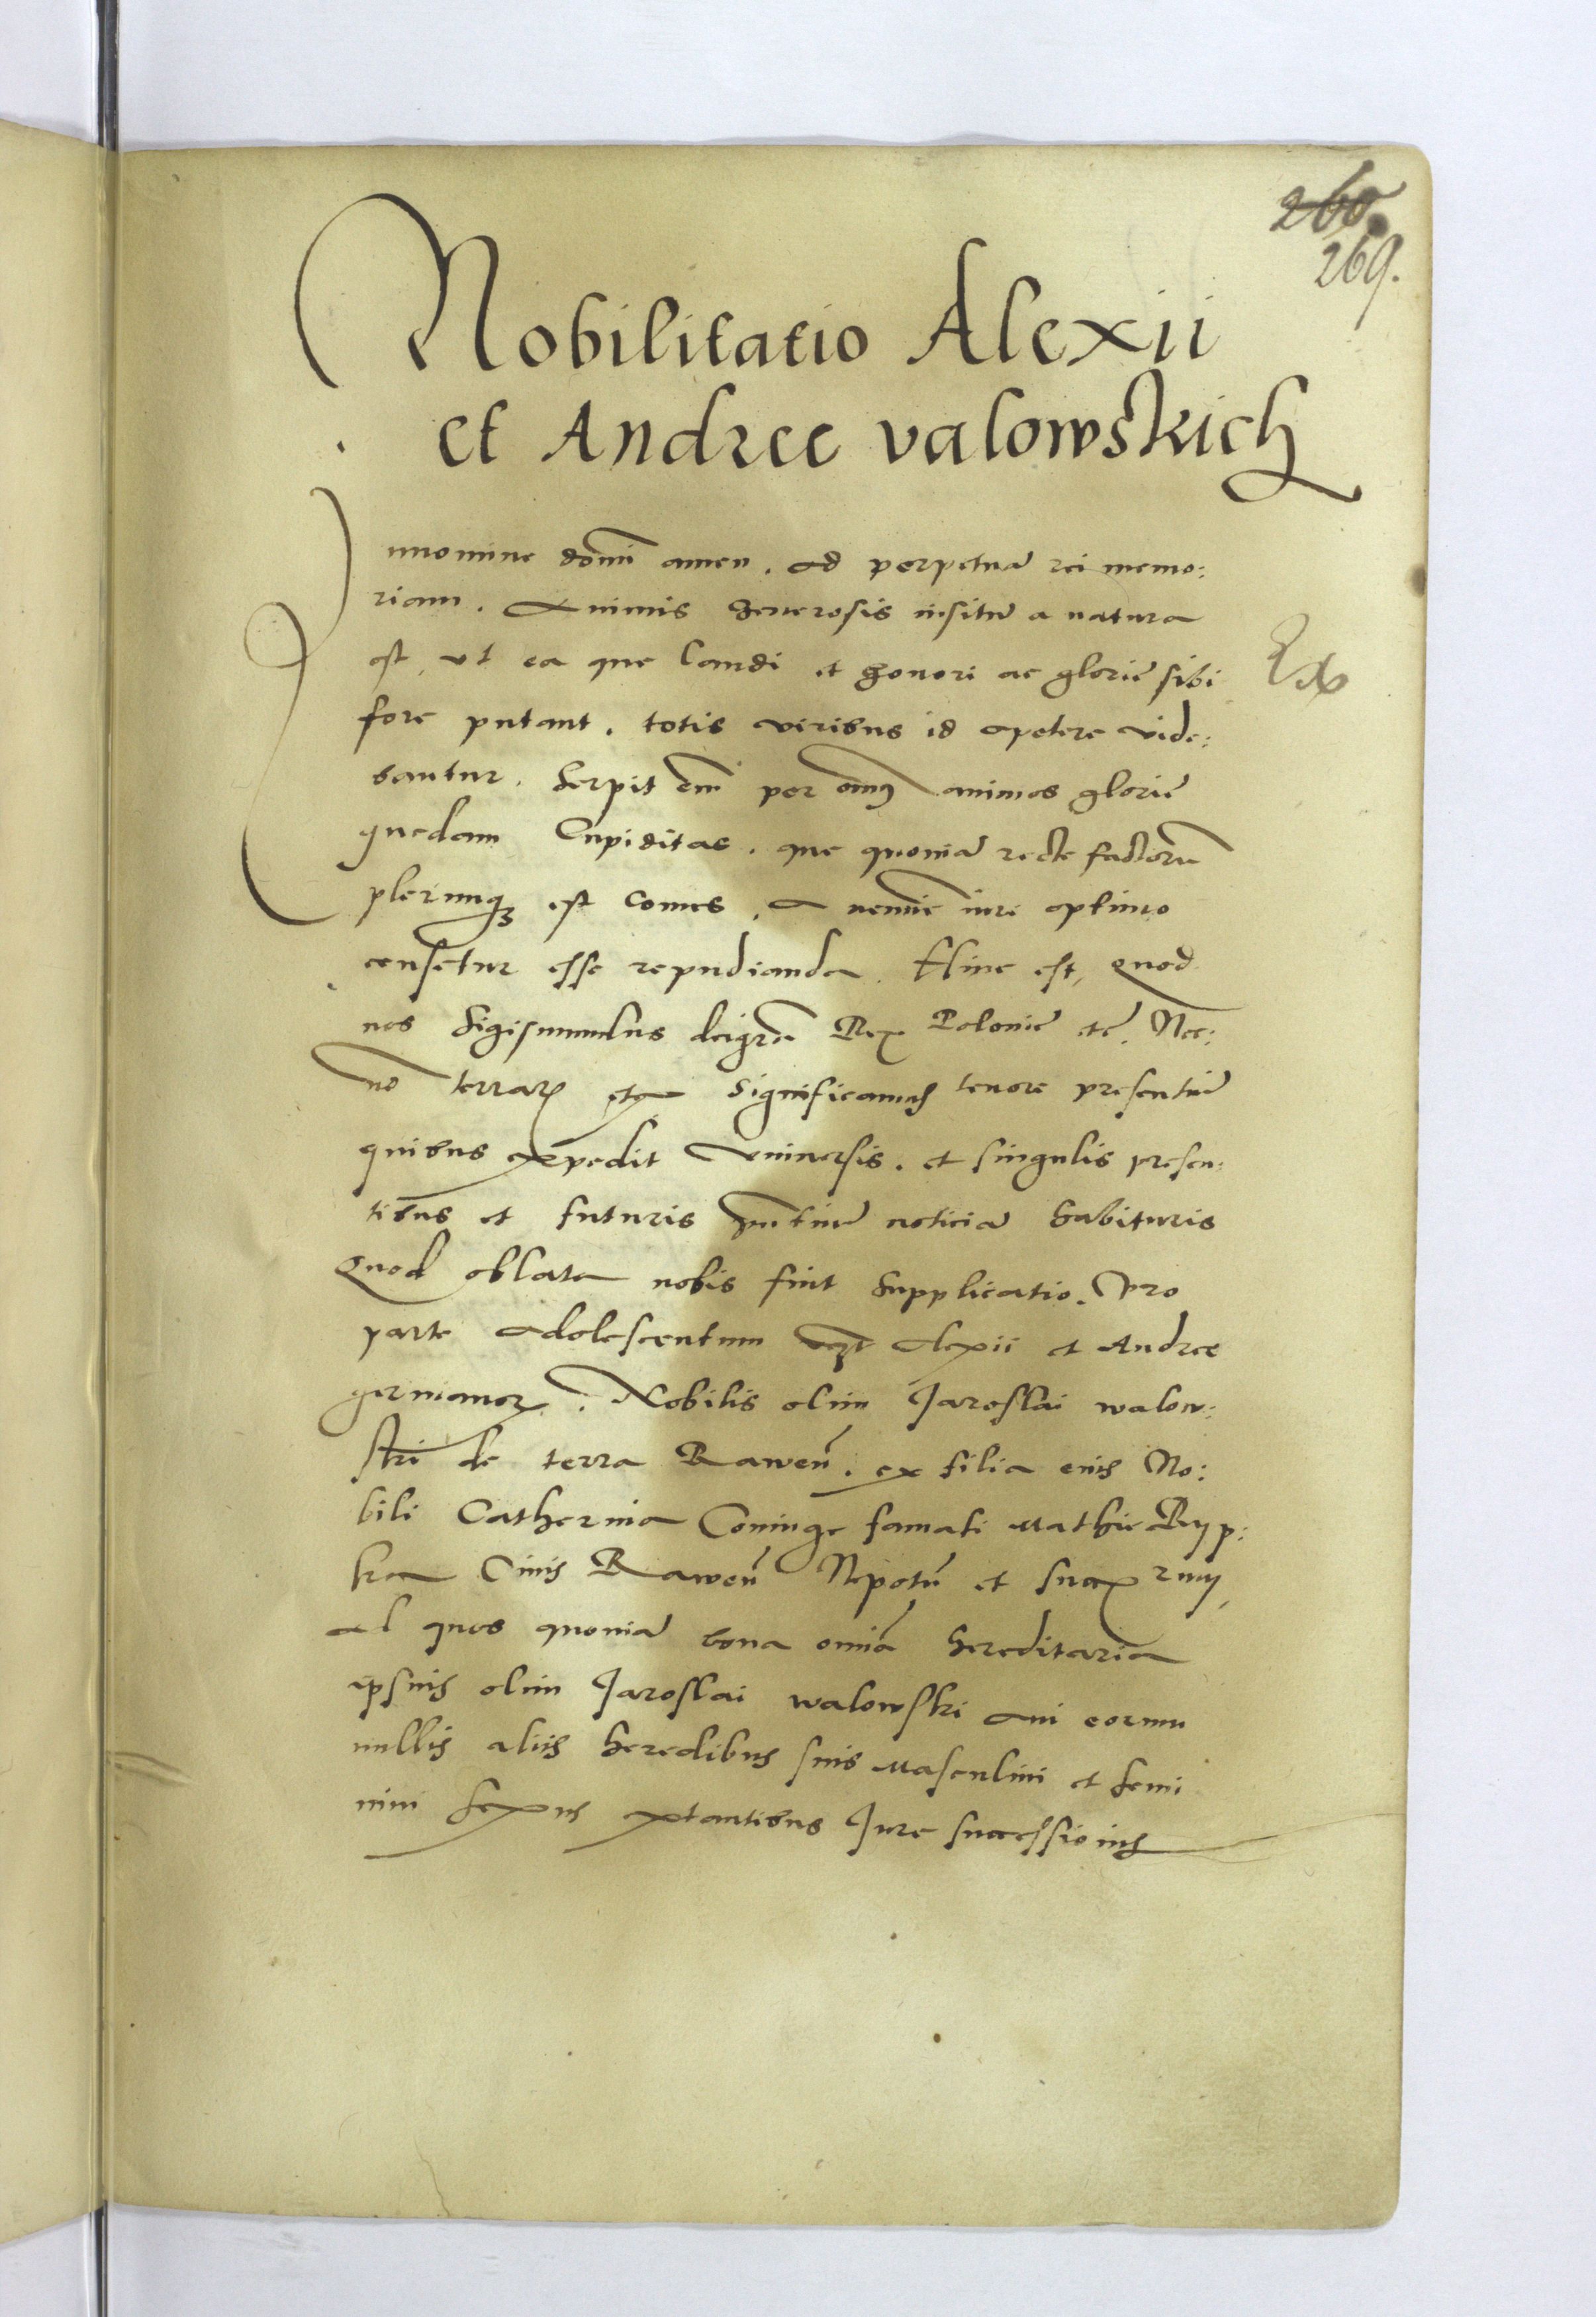 260
269.
Nobilitatio Alexii
et Andree valowskich
Innomine domi amen. ad perpetuã rei memo:
riam. Animis generosis insitũ a natura
est, vt ea que laudi et honori ac glorie sibi
Ex
fore putant. totis viribus id apetere vide:
bantur. Serpit em̃ per omỹ animos glorie
quedam Cupiditas. que quoniã recte factorũ
plerumqʒ est comes. a nemine iure optimo
censetur esse repudianda. Hinc est, quod
nos Sigismundus dei grã Rex Polonie etc̃. Nec:
nõ terrarꝝ etc Significamus tenore presentiũ
quibus expedit vniuersis. et singulis presen:
tibus et futuris harũ noticiã habituris
Quod oblata nobis fuit Supplicatio. Pro
parte adolescentum Alexii et Andree
germanorꝝ. Nobilis olim Jaroslai walow:
ski de terra Raweñ. ex filia eius No:
bili Catherina Coniuge famati Mathie Ryp:
ka Ciuis Raweñ Nepotũ et
ad quos quoniã bona omniã hereditaria
ipsius olim Jaroslai walowski aui eorum
nullis aliis heredibus suis Masculini et femi
nini sexus extantibus Jure successionis